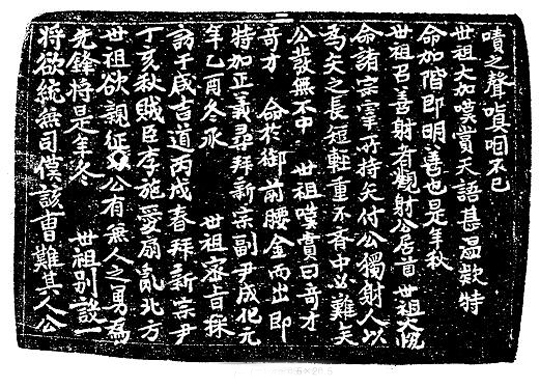 二
嘖之聲嗔咽不已
世祖大加嘆賞天語甚溫款特
命加階即明善也是年秋
世祖召善射者觀射公居首 世祖大悅
命諸宗宰所持矢付公獨射人以
爲矢之長短輕重不齊中必難矣
公發無不中 世祖嘆賞曰奇才
奇才 命於御前腰金而出即
特加正義尋拜新宗副尹成化元
年乙酉冬承 世祖密旨採
訪于咸吉道丙戌春拜新宗尹
丁亥秋賊臣李施愛扇亂北方
世祖欲親征以公有無人之勇為
先鋒將是年冬 世祖別設一
將欲統無司僕該曹難其人公